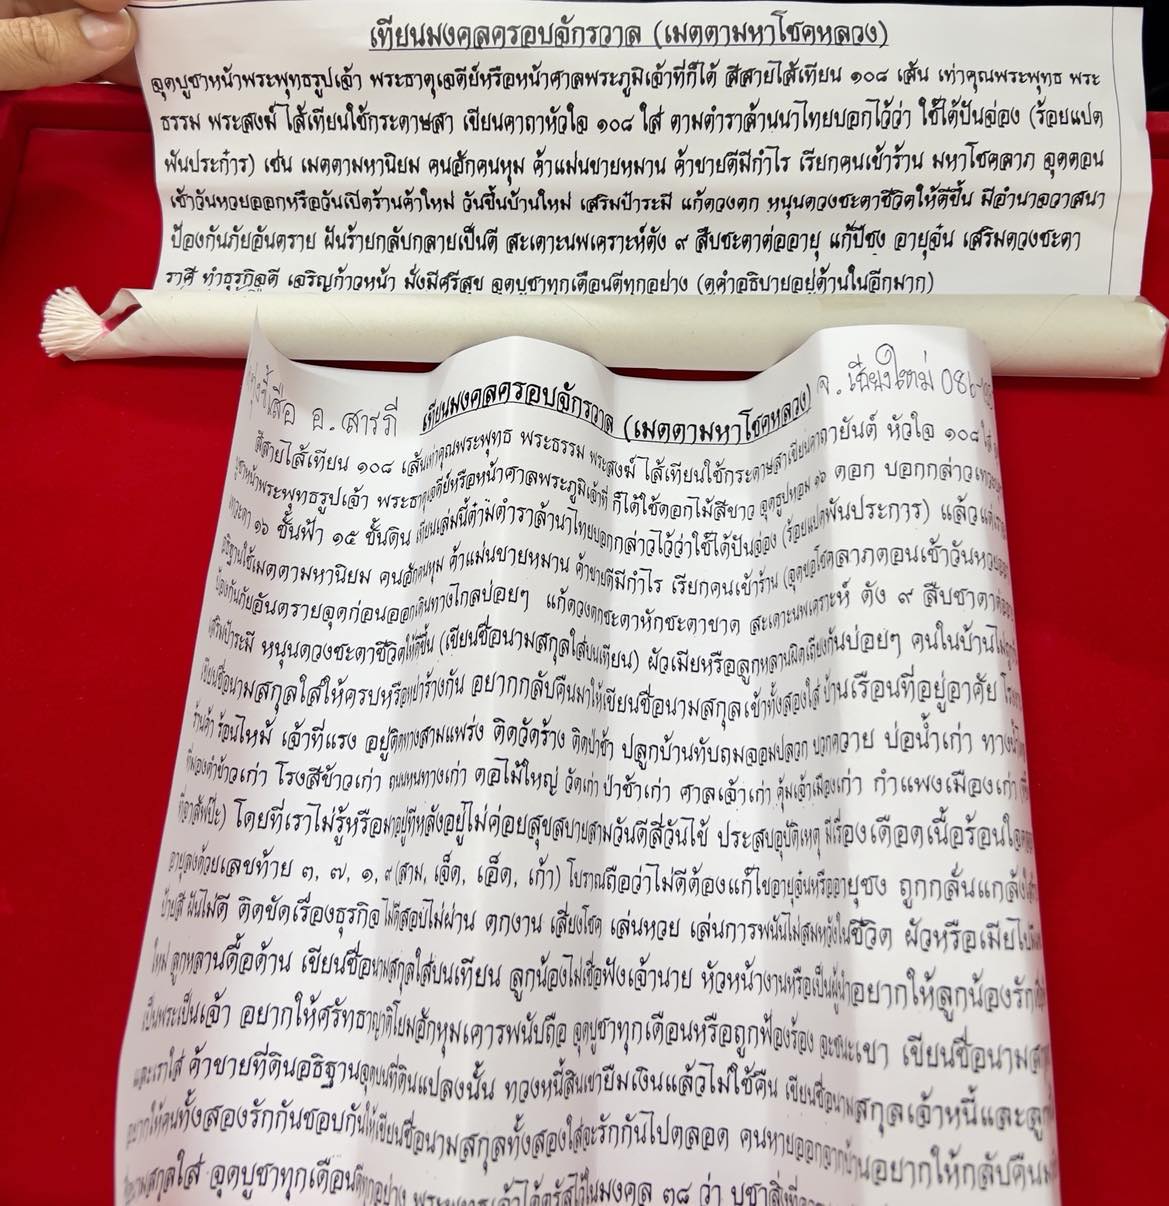 เทียนมงคลครอบจักรวาล (เมตตามหาโชคหลวง)
จุดบูชาหน้าพระพุทธรูปเจ้า พระธาตุเจดีย์หรือหน้าศาลพระภูมิเจ้าที่ก็ได้ สีสายไส้เทียน ๑๐๘ เส้น เท่าคุณพระพุทธ พระ
ธรรม พระสงฆ์ ไส้เทียนใช้กระดาษสา เขียนคาถาหัวใจ ๑๐๘ ใส่ ตามตำราล้านนาไทยบอกไว้ว่า ใช้ได้ปันจ่อง (ร้อยแปด
พันประก๋าร) เช่น เมตตามหานิยม คนฮักคนหุม ค้าแม่นขายหมาน ค้าขายดีมีกำไร เรียกคนเข้าร้าน มหาโชคลาภ จุดตอน
เช้าวันหวยออกหรือวันเปิดร้านค้าใหม่ วันขึ้นบ้านใหม่ เสริมป๋าระมี แก้ดวงตก หนุนดวงชะตาชีวิตให้ดีขึ้น มีอำนาจวาสนา
ป้องกันภัยอันตราย ฝันร้ายกลับกลายเป็นดี สะเดาะนพเคราะห์ตัง ๙ สืบชะตาต่ออายุ แก้ปีชง อายุจ๋น เสริมดวงชะตา
ราศี ทำธุรกิจดี เจริญก้าวหน้า มั่งมีศรีสุข จุดบูชาทุกเดือนดีทุกอย่าง (ดูคำอธิบายอยู่ด้านในอีกมาก)
ขี้เสือ อ. สารภี เทียนมงคลครอบจักรวาล (เมตตามหาโชคหลวง) จ. เชียงใหม่
สีสายไส้เทียน ๑๐๘ เส้นเท่าคุณพระพุทธ พระธรรม พระสงฆ์ ไส้เทียนใช้กระดาษสาเขียนคาถายันต์ หัวใจ ๑๐๘ ใส่
บูชาหน้าพระพุทธรูปเจ้า พระธาตุเจดีย์หรือหน้าศาลพระภูมิเจ้าที่ ก็ได้ใช้ดอกไม้สีขาว จุดธูปหอม ๑๖ ดอก บอกกล่าว
๑๖ ชั้นฟ้า ๑๕ ชั้นดิน เทียนเล่มนี้ต๋ามตำราล้านาไทยบอกกล่าวไว้ว่าใช้ได้ปันจ่อง (ร้อยแปดพันประการ) แล้วแต่
อธิฐานใช้เมตตามหานิยม คนฮักคนหุม ค้าแม่นขายหมาน ค้าขายดีมีกำไร เรียกคนเข้าร้าน (จุดขอโชคลาภตอนเช้าวันหวยออก
ป้องกันภัยอันตรายจุดก่อนออกเดินทางไกลบ่อยๆ แก้ดวงตกชะตาหักชะตาขาด สะเดาะนพเคราะห์ ตัง ๙ สืบชาตา
เสริมป๋าระมี หนุนดวงชะตาชีวิตให้ดีขึ้น (เขียนชื่อนามสกุลใส่บนเทียน) ผัวเมียหรือลูกหลานผิดเถียงกันบ่อยๆ คนในบ้านไม่
เขียนชื่อนามสกุลใส่ให้ครบหรือหย่าร้างกัน อยากกลับคืนมาให้เขียนชื่อนามสกุลเข้าทั้งสองใส่ บ้านเรือนที่อยู่อาศัย
ร้านค้า ร้อนไหม้ เจ้าที่แรง อยู่ติดทางสามแพร่ง ติดวัดร้าง ติดป่าช้า ปลูกบ้านทับถมจอมปลวก ปวกควาย บ่อน้ำเก่า ทางน้ำ
ที่มองตำข้าวเก่า โรงสีข้าวเก่า ถนนหนทางเก่า ตอไม้ใหญ่ วัดเก่า ป่าช้าเก่า ศาลเจ้าเก่า คุ้มเจ้าเมืองเก่า กำแพงเมืองเก่า
โดยที่เราไม่รู้หรือมาอยู่ทีหลังอยู่ไม่ค่อยสุขสบายสามวันดีสี่วันไข้ ประสบอุบัติเหตุ มีเรื่องเดือดเนื้อร้อนใจ
อายุลงด้วยเลขท้าย ๓, ๗, ๑, ๙ (สาม, เจ็ด, เอ็ด, เก้า) โบราณถือว่าไม่ดีต้องแก้ไขอายุจ๋นหรืออายุชง ถูกกลั่นแกล้ง
ฝันไม่ดี ติดขัดเรื่องธุรกิจ ไม่ดีสอบไม่ผ่าน ตกงาน เสี่ยงโชค เล่นหวย เล่นการพนันไม่สมหวังในชีวิต ผัวหรือเมียไป
ใหม่ ลูกหลานดื้อด้าน เขียนชื่อนามสกุลใส่บนเทียน ลูกน้องไม่เชื่อฟังเจ้านาย หัวหน้างานหรือเป็นผู้นำอยากให้ลูกน้องรัก
เป็นพระเป็นเจ้า อยากให้ศรัทธาญาติโยมฮักหุมเคารพนับถือ จุดบูชาทุกเดือนหรือถูกฟ้องร้อง จะชนะเขา เขียนชื่อนาม
และเราใส่ ค้าขายที่ดินอธิฐานจุดบนที่ดินแปลงนั้น ทวงหนี้สินเขายืมเงินแล้วไม่ใช้คืน เขียนชื่อนามสกุลเจ้าหนี้และลูก
อยากให้คนทั้งสองรักกันชอบกันให้เขียนชื่อนามสกุลทั้งสองใส่จะรักกันไปตลอด คนหายออกจากบ้านอยากให้กลับคืน
นามสกุลใส่ จุดบูชาทุกเดือนดีทุกอย่าง พระพุทธเจ้าได้ตรัสไว้ในมงคล ๓๘ ว่า บูชาสิ่งที่